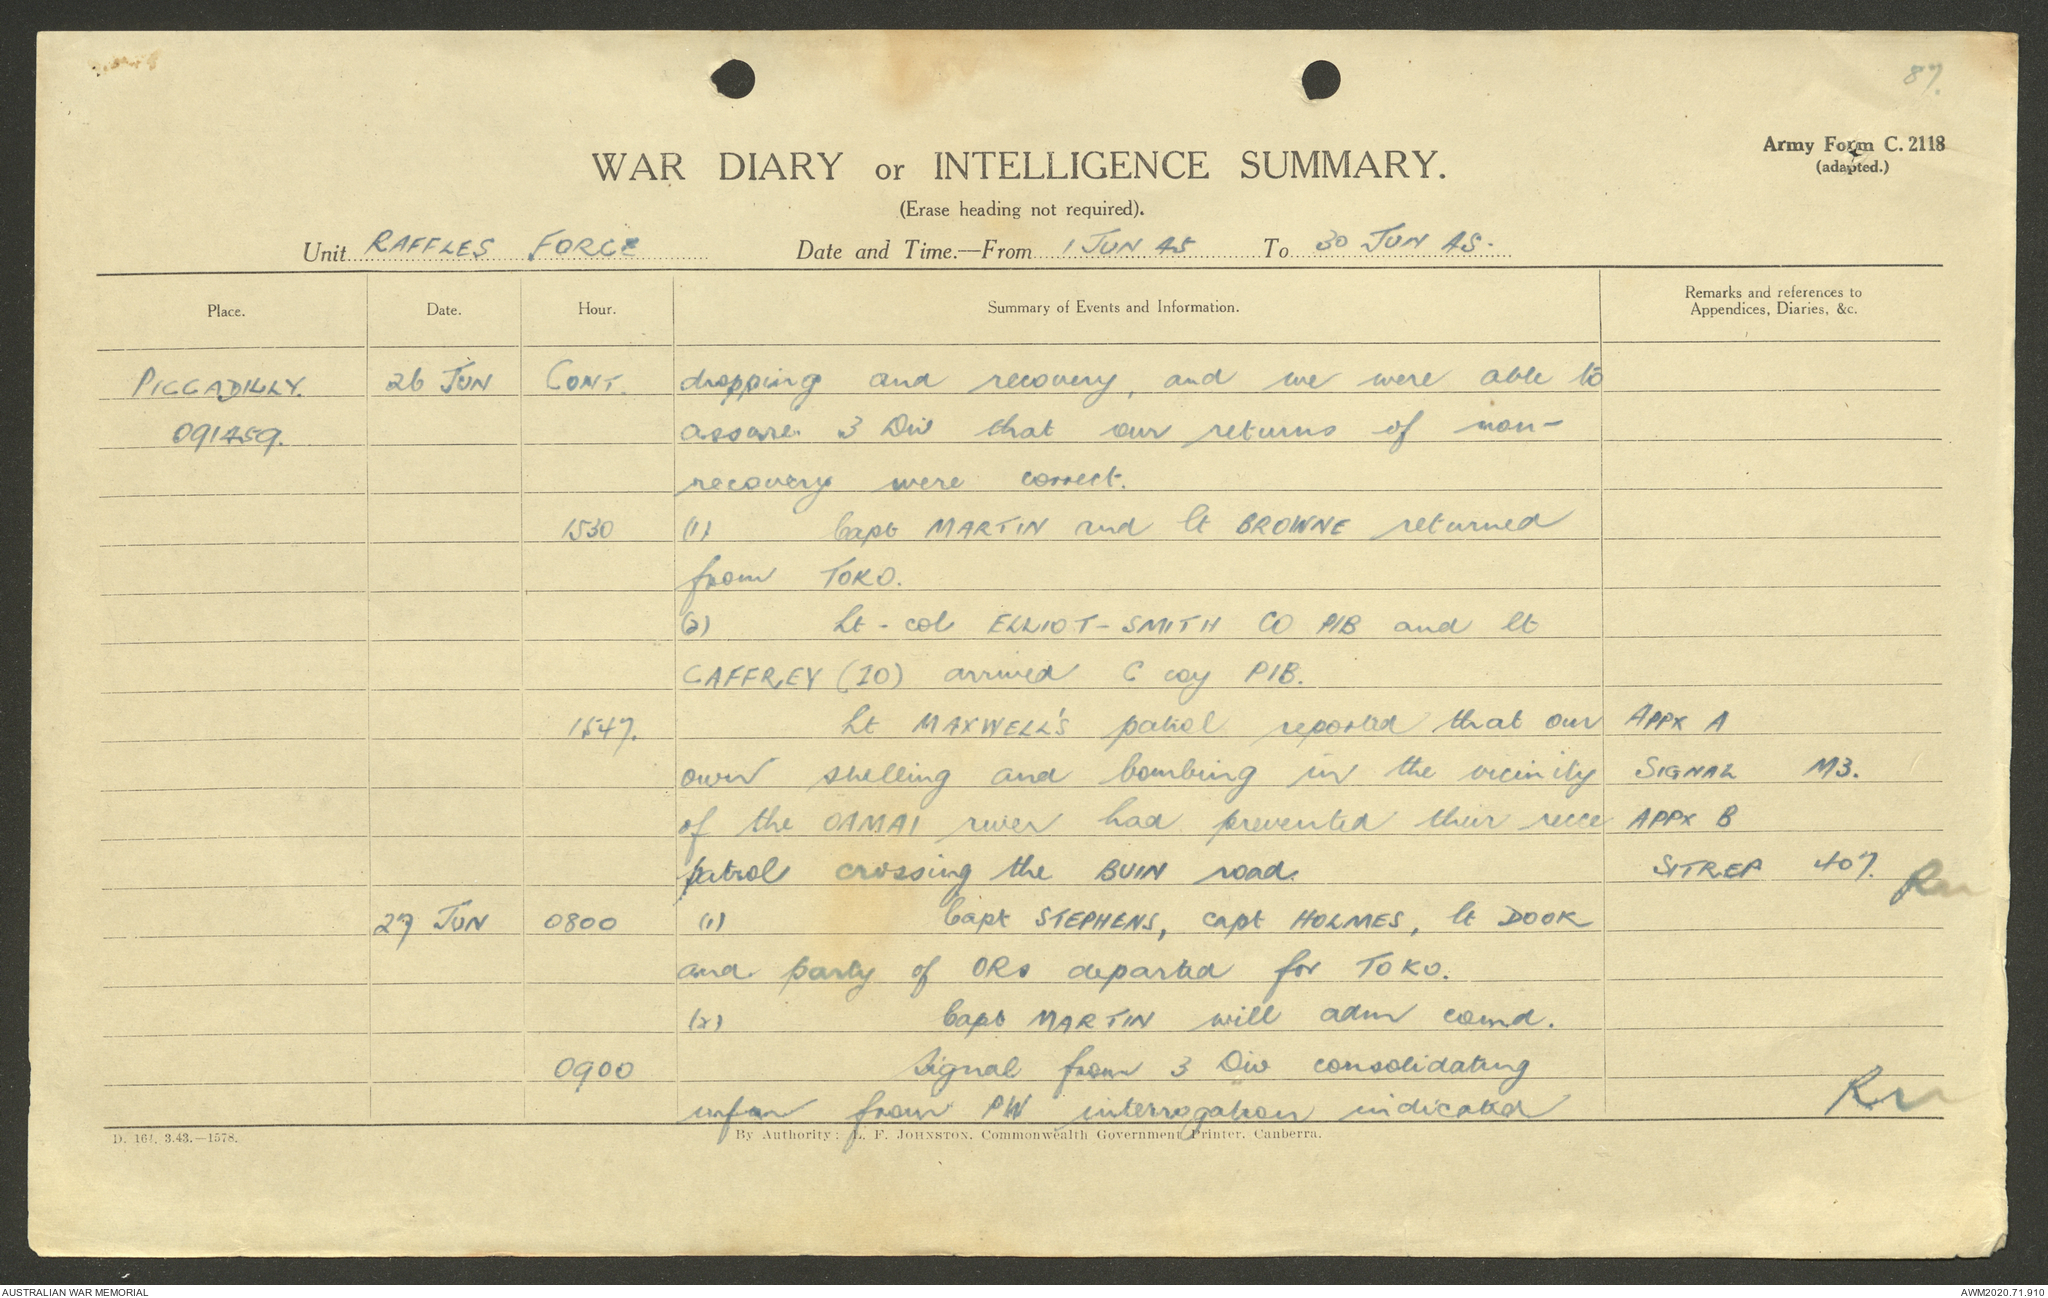 87.
Army Form C. 2118
(adapted.)
WAR DIARY or INTELLIGENCE SUMMARY.
(Erase heading not required).
Unit RAFFLES FORCE Date and Time.—From 1 JUN 45 To 30 JUN 45.
Place. Date. Hour. Summary of Events and Information. Remarks and references to Appendices, Diaries, &c.
PICCADILLY. 26 JUN CONT. dropping and recovery, and we were able to
091459. assure 3 Div that our returns of non-
recovery were correct.
1530 (1) Capt MARTIN and Lt BROWNE returned
from TOKO.
(2) Lt-col ELLIOT-SMITH CO PIB and Lt
CAFFREY (IO) arrived C coy PIB.
1547. Lt MAXWELL'S patrol reported that our APPX A
own shelling and bombing in the vicinity SIGNAL M3.
of the OAMAI river had prevented their recce APPX B
patrol crossing the BUIN road. SITREP 407.
27 JUN 0800 (1) Capt STEPHENS, Capt HOLMES, Lt DOOK
and party of ORs departed for TOKO.
(2) Capt MARTIN will adm comd.
0900 Signal from 3 Div consolidating
infm from PW interrogation indicated
D. 161. 3.43.—1578. By Authority: L. F. JOHNSTON, Commonwealth Government Printer, Canberra.
AUSTRALIAN WAR MEMORIAL AWM2020.71.910